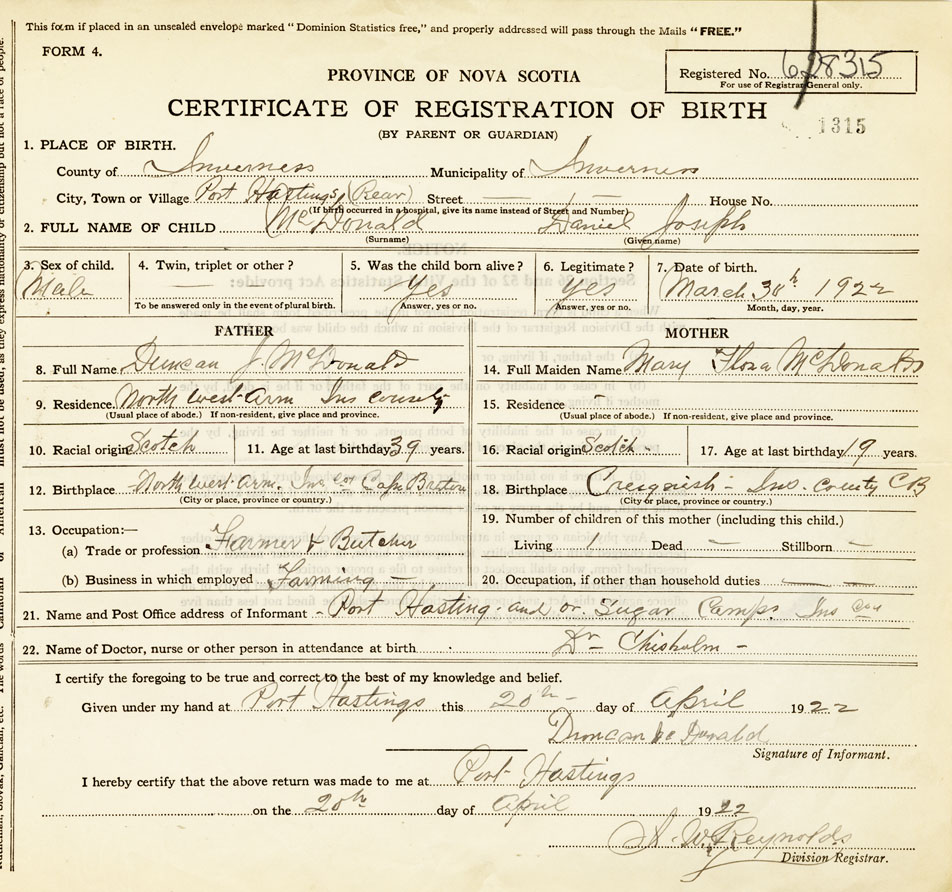 This form if placed in an unsealed envelope marked "Dominion Statistics free," and properly addressed will pass through the Mails "FREE."
FORM 4.
Registered No. 628315
For use of Registrar General only.
PROVINCE OF NOVA SCOTIA
CERTIFICATE OF REGISTRATION OF BIRTH
1315
(BY PARENT OR GUARDIAN)
1. PLACE OF BIRTH.
County of Inverness Municipality of Inverness
City, Town or Village Port Hastings (Rear) Street — — House No.
(If birth occurred in a hospital, give its name instead of Street and Number)
2. FULL NAME OF CHILD McDonald Daniel Joseph
(Surname) (Given name)
3. Sex of child. Male
4. Twin, triplet or other? —
To be answered only in the event of plural birth.
5. Was the child born alive? Yes
Answer, yes or no.
6. Legitimate? Yes
Answer, yes or no.
7. Date of birth. March 30th 1922
Month, day, year.
FATHER
8. Full Name Duncan J. McDonald
9. Residence. North West Arm Ins county
(Usual place of abode.) If non-resident, give place and province.
10. Racial origin Scotch 11. Age at last birthday 39 years.
12. Birthplace North West Arm. Ins Co Cape Breton
(City or place, province or country.)
13. Occupation:—
(a) Trade or profession Farmer & Butcher
(b) Business in which employed Farming —
MOTHER
14. Full Maiden Name Mary Flora McDonald
15. Residence -
(Usual place of abode.) If non-resident, give place and province.
16. Racial origin Scotch - 17. Age at last birthday 19 years.
18. Birthplace Creignish - Ins. County CB
(City or place, province or country.)
19. Number of children of this mother (including this child.)
Living 1 Dead — Stillborn —
20. Occupation, if other than household duties — —
21. Name and Post Office address of Informant - Port Hasting and or Sugar Camp. Ins Co
22. Name of Doctor, nurse or other person in attendance at birth Dr - Chisholm -
I certify the foregoing to be true and correct to the best of my knowledge and belief.
Given under my hand at Port Hastings this 20th - day of April 1922
Duncan Mc Donald
Signature of Informant.
I hereby certify that the above return was made to me at Port Hastings
on the 20th day of April 1922
A. W. Reynolds
Division Registrar.